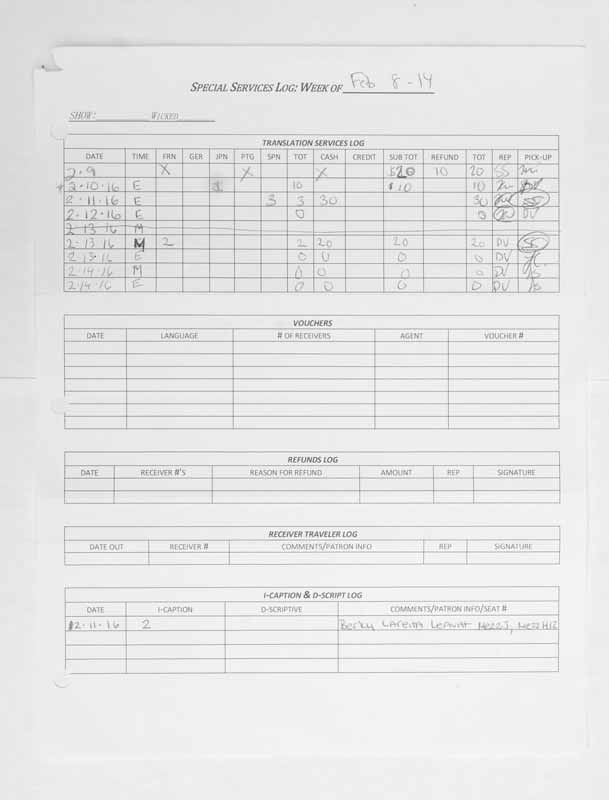 SPECIAL SERVICES LOG: WEEK OF Feb 8-14
SHOW: WICKED
TRANSLATION SERVICES LOG
DATE TIME FRN GER JPN PTG SPN TOT CASH CREDIT SUB TOT REFUND TOT REP PICK-UP
2.9 X X X $20 10 20 SS
2.10.16 E 10 $10 10 DV
2.11.16 E 3 3 30 30 SS
2.12.16 E 0 0 DV
2 13 16 M
2.13 16 M 2 2 20 20 20 DV SS
2.13.16 E 0 0 0 0 DV
2.14.16 M 0 0 0 0 DV
2.14.16 E 0 0 0 0 DV
VOUCHERS
DATE LANGUAGE # OF RECEIVERS AGENT VOUCHER #
REFUNDS LOG
DATE RECEIVER #'S REASON FOR REFUND AMOUNT REP SIGNATURE
RECEIVER TRAVELER LOG
DATE OUT RECEIVER # COMMENTS/PATRON INFO REP SIGNATURE
I-CAPTION & D-SCRIPT LOG
DATE I-CAPTION D-SCRIPTIVE COMMENTS/PATRON INFO/SEAT #
2.11.16 2 Becky Leavitt Mezz J, Mezz H12